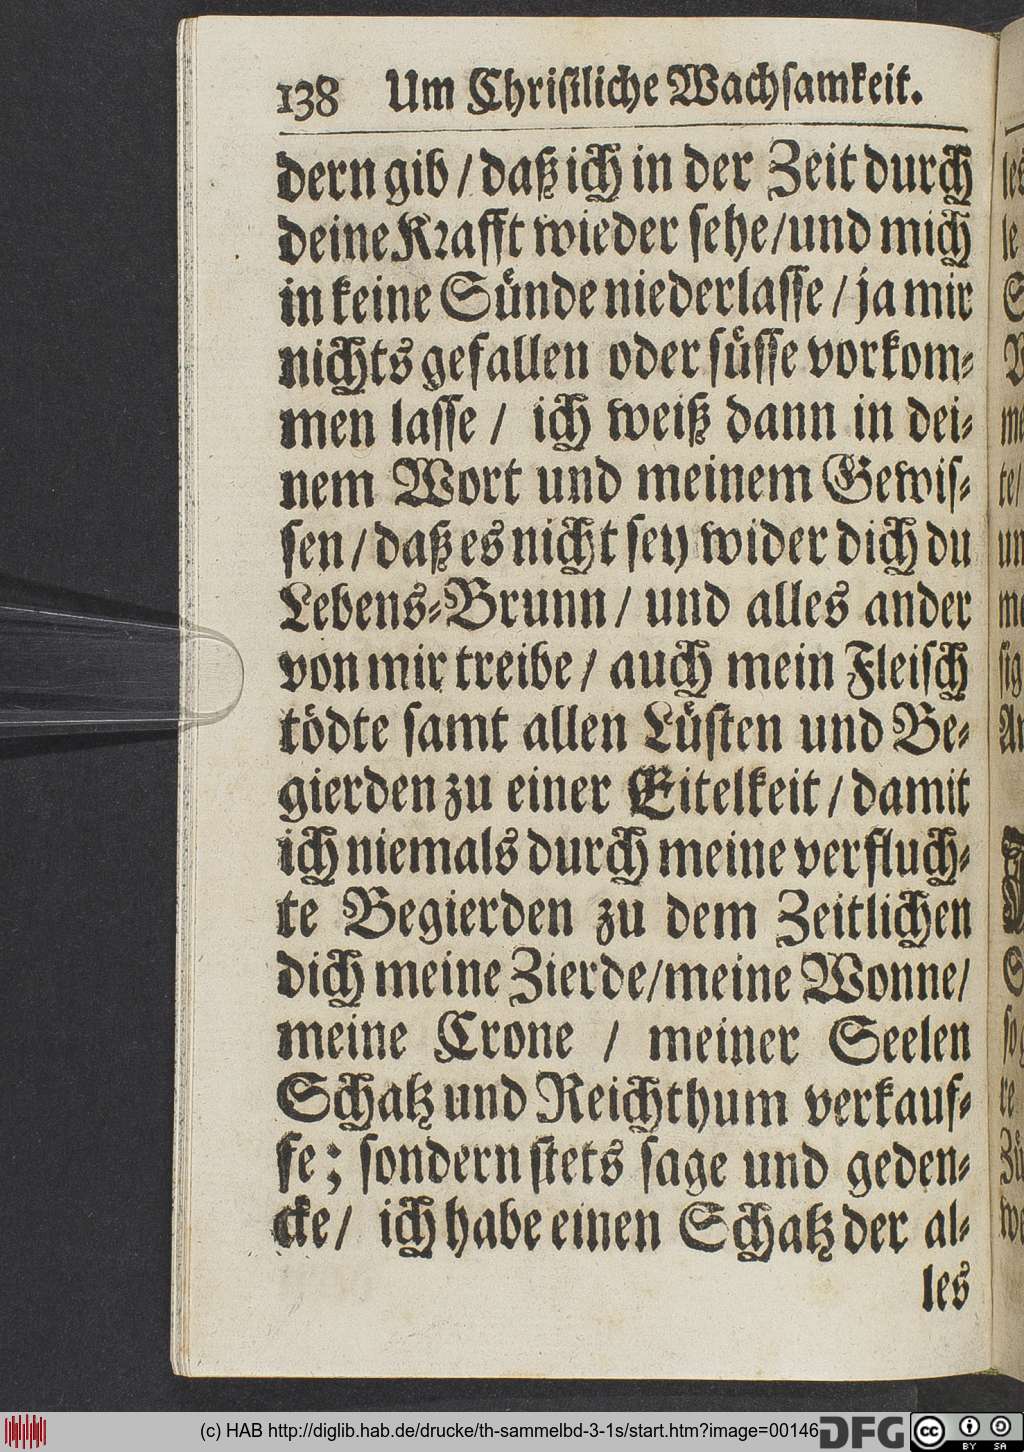 138 Um Chriſtliche Wachſamkeit.
dern gib / daß ich in der Zeit durch
deine Krafft wieder ſehe / und mich
in keine Suͤnde niederlaſſe / ja mir
nichts gefallen oder ſuͤſſe vorkom⸗
men laſſe / ich weiß dann in dei⸗
nem Wort und meinem Gewiſ⸗
ſen / daß es nicht ſey wider dich du
Lebens⸗Brunn / und alles ander
von mir treibe / auch mein Fleiſch
toͤdte ſamt allen Luͤſten und Be⸗
gierden zu einer Eitelkeit / damit
ich niemals durch meine verfluch⸗
te Begierden zu dem Zeitlichen
dich meine Zierde / meine Wonne /
meine Crone / meiner Seelen
Schatz und Reichthum verkauf⸗
fe; ſondern ſtets ſage und geden⸗
cke / ich habe einen Schatz der al⸗
les
(c) HAB http://diglib.hab.de/drucke/th-sammelbd-3-1s/start.htm?image=00146
DFG
cc
BY SA